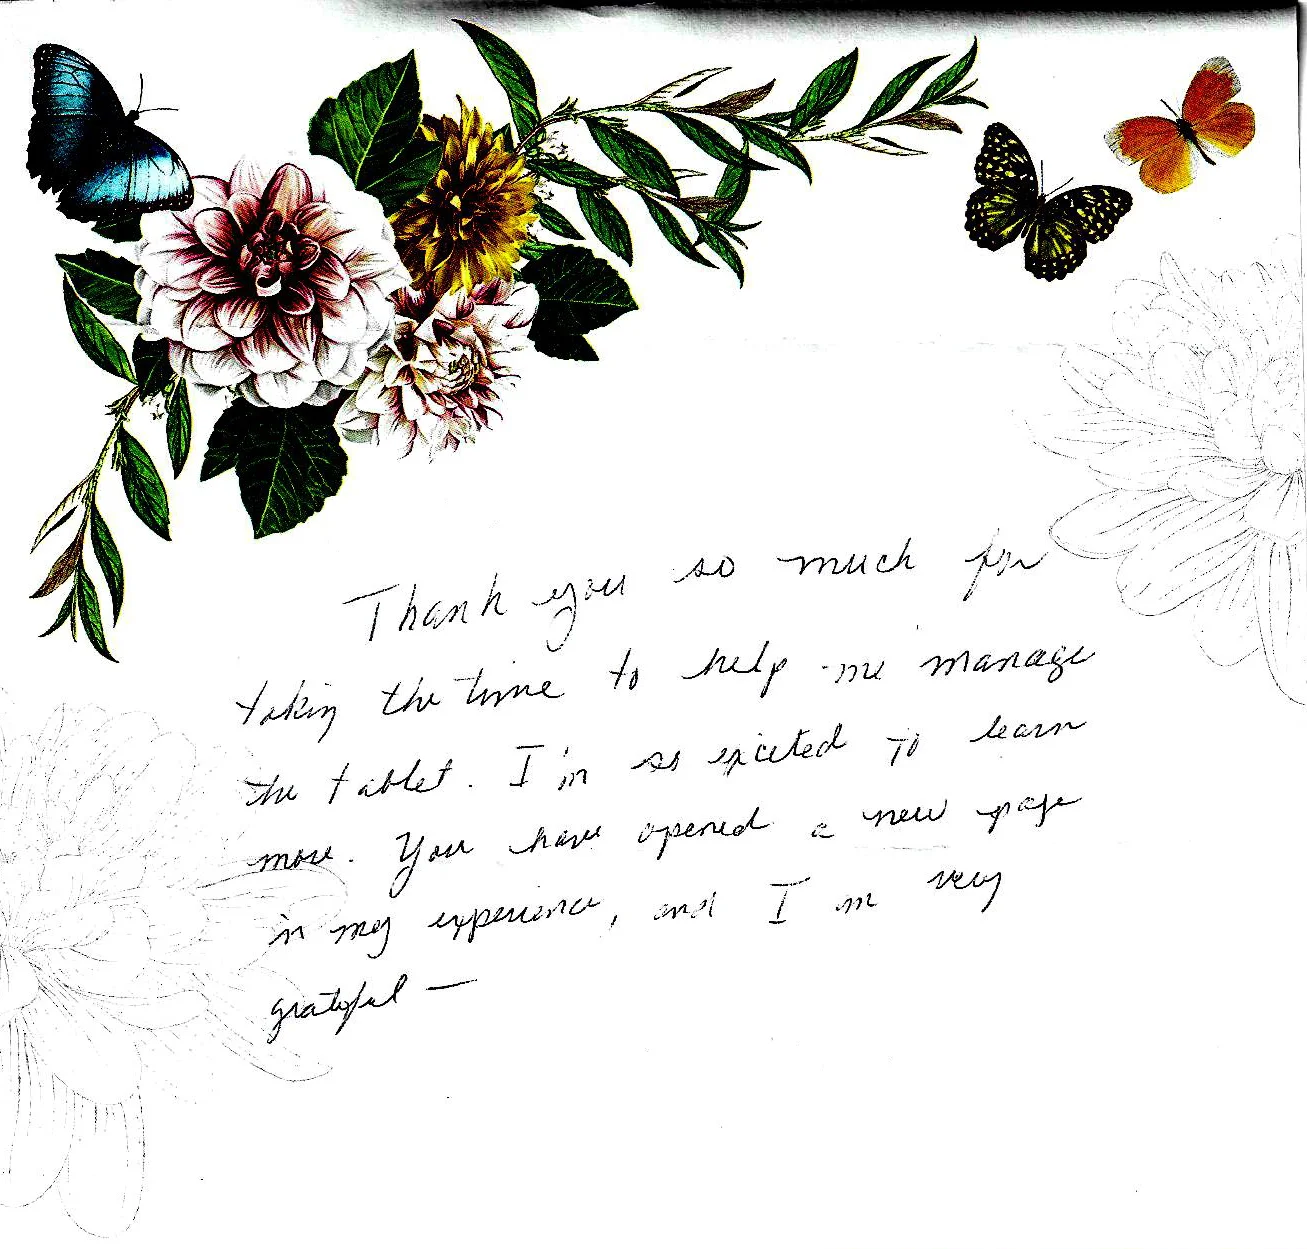 Thank you so much for
taking the time to help me manage
the tablet. I'm so excited to learn
more. You have opened a new page
in my experience, and I am very
grateful —